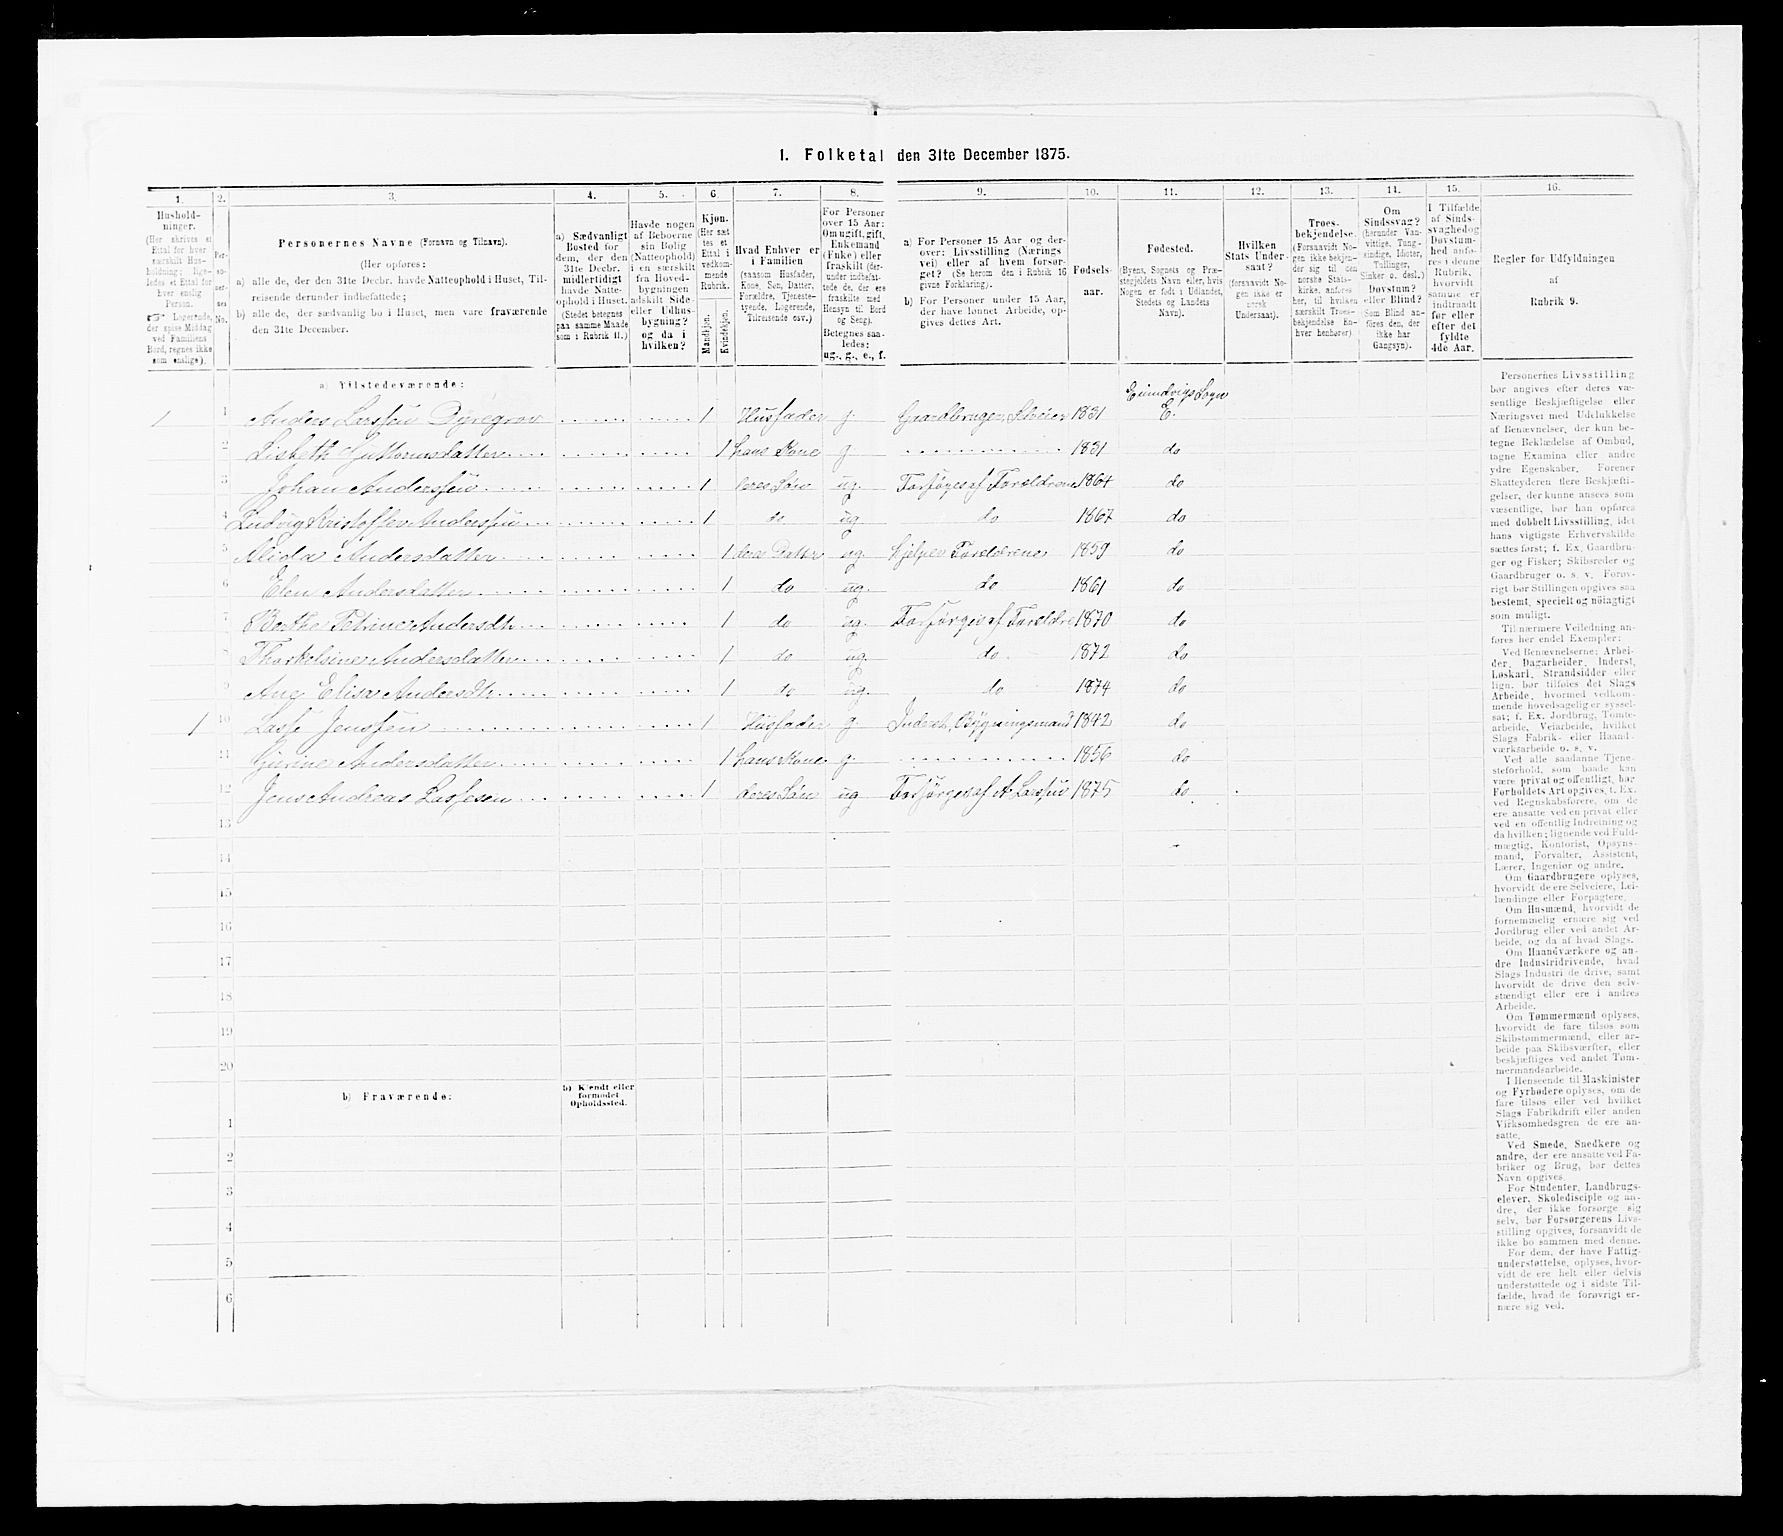 1. Folketal den 31te December 1875.
1. 2. 3. 4. 5. 6. 7. 8. 9. 10. 11. 12. 13. 14. 15. 16.
Hushold-
ninger.
(Her skrives et
Ettal for hver
særskilt Hus-
holdning; lige-
ledes et Ettal for
hver enslig
Person.
☞ Logerende,
der spise Middag
ved Familiens
Bord, regnes ikke
som enslige).
Per-
so-
ner-
nes
No.
Personernes Navne (Fornavn og Tilnavn).
(Her opføres:
a) alle de, der den 31te Decbr. havde Natteophold i Huset, Til-
reisende derunder indbefattede;
b) alle de, der sædvanlig bo i Huset, men vare fraværende
den 31te December.
a) Sædvanligt
Bosted for
dem, der den
31te Decbr.
midlertidigt
havde Natte-
ophold i Huset.
(Stedet betegnes
paa samme Maade
som i Rubrik 11.)
Havde nogen
af Beboerne
sin Bolig
(Natteophold)
i en særskilt
fra Hoved-
bygningen
adskilt Side-
eller Udhus-
bygning?
og da i
hvilken?
Kjøn.
(Her sæt
tes et
Ettal i
vedkom-
mende
Rubrik.
Mandkjøn.
Kvindekjøn.
Hvad Enhver er
i Familien
(saasom Husfader,
Kone, Søn, Datter,
Forældre, Tjeneste-
tyende, Logerende,
Tilreisende osv.)
For Personer
over 15 Aar:
Om ugift, gift,
Enkemand
(Enke) eller
fraskilt (der-
under indbefat-
tede de, der ere
fraskilte med
Hensyn til Bord
og Seng).
Betegnes saa-
ledes:
ug., g., e., f.
a) For Personer 15 Aar og der-
over: Livsstilling (Nærings
vei) eller af hvem forsør-
get? (Se herom den i Rubrik 16
givne Forklaring).
b) For Personer under 15 Aar,
der have lønnet Arbeide, op-
gives dettes Art.
Fødsels-
aar.
Fødested.
(Byens, Sognets og Præ-
stegjeldets Navn eller, hvis
Nogen er født i Udlandet,
Stedets og Landets
Navn).
Hvilken
Stats Under-
saat?
(forsaavidt No-
gen ikke er
norsk
Undersaat).
Troes-
bekjendelse.
(Forsaavidt No-
gen ikke bekjen-
der sig til den
norske Stats-
kirke, anføres
her, til hvilken
særskilt Troes-
bekjendelse En-
hver henhører).
Om
Sindssvag?
(herunder Van-
vittige, Tung-
sindige, Idioter,
Tullinger,
Sinker o. desl.)
Døvstum?
eller Blind?
Som Blind an-
føres den, der
ikke har
Gangsyn).
I Tilfælde
af Sinds-
svaghed og
Døvstum-
hed anfø-
res i denne
Rubrik,
hvorvidt
samme er
indtraadt
før eller
efter det
fyldte
4de Aar.
Regler for Udfyldningen
af
Rubrik 9.
a) Tilstedeværende:
Eiindvigs Sogn
1 1 Anders Larssen Dyregrov 1 Husfader g Gaardbruger, Selveier 1831 E.
2 Lisbeth Guttormsdatter 1 hans Kone g 1831 do
3 Johan Anderssen 1 deres Søn ug Forsørges af Forældrene 1864 do
4 Ludvig Kristoffer Anderssen 1 do ug do 1867 do
5 Alida Andersdatter 1 deres Datter ug hjelper Forældrene 1859 do
6 Elen Andersdatter 1 do ug. do 1861 do
7 Berthe Petrine Andersdtr 1 do ug. Forsørges af Forældre 1870 do
8 Thorkelsine Andersdatter 1 do ug. do 1872 do
9 Ane Elisa Andersdtr 1 do ug. do 1874 do
1 10 Lasse Jenssen 1 Husfader g Inderst, Bygningsmand 1842 do
11 Gurine Andersdatter 1 hans Kone g 1856 do
12 Jens Andreas Lassesen 1 deres Søn ug Forsørges af A Larssen 1875 do
13
14
15
16
17
18
19
20
b) Fraværende:
b) Kjendt eller
formodet
Opholdssted.
1
2
3
4
5
6
Personernes Livsstilling
bør angives efter deres væ-
sentlige Beskjæftigelse eller
Næringsvei med Udelukkelse
af Benævnelser, der kun be-
tegne Beklædelse af Ombud,
tagne Examina eller andre
ydre Egenskaber. Forener
Skatteyderen flere Beskjæfti-
gelser, der kunne ansees som
væsentlige, bør han opføres
med dobbelt Livsstilling, idet
hans vigtigste Erhvervskilde
sættes først; f. Ex. Gaardbru-
ger og Fisker; Skibsreder og
Gaardbruger o. s. v. Forøv-
rigt bør Stillingen opgives saa
bestemt, specielt og nøiagtigt
som muligt.
Til nærmere Veiledning an-
føres her endel Exempler:
Ved Benævnelserne: Arbei-
der, Dagarbeider, Inderst,
Løskarl, Strandsidder eller
lign. bør tilføies det Slags
Arbeide, hvormed vedkom-
mende hovedsagelig er syssel-
sat; f. Ex. Jordbrug, Tomte-
arbeide, Veiarbeide, hvilket
Slags Fabrik- eller Haand-
værksarbeide o. s. v.
Ved alle saadanne Tjene-
steforhold, som baade kan
være privat og offentligt, bør
Forholdets Art opgives, t. Ex.
ved Regnskabsførere, om de
ere ansatte ved en privat eller
ved en offentlig Indretning og
da hvilken; lignende ved Fuld-
mægtig, Kontorist, Opsyns-
mand, Forvalter, Assistent,
Lærer, Ingeniør og andre.
Om Gaardbrugere oplyses,
hvorvidt de ere Selveiere, Lei-
lændinge eller Forpagtere.
Om Husmænd, hvorvidt de
fornemmelig ernære sig ved
Jordbrug eller ved andet Ar-
beide, og da af hvad Slags.
Om Haandværkere og an-
dre Industridrivende, hvad
Slags Industri de drive, samt
hvorvidt de drive den selv-
stændigt eller ere i andres
Arbeide.
Om Tømmermænd oplyses,
hvorvidt de fare tilsøs som
Skibstømmermænd, eller ar-
beide paa Skibsværfter, eller
beskjæftiges ved andet Tøm-
mermandsarbeide.
I Henseende til Maskinister
og Fyrbødere oplyses, om de
fare tilsøs eller ved hvilket
Slags Fabrikdrift eller anden
Virksomhedsgren de ere an-
satte.
Ved Smede, Snedkere og
andre, der ere ansatte ved Fa-
briker og Brug, bør dettes
Navn opgives.
For Studenter, Landbrugs-
elever, Skoledisciple og an-
dre, der ikke forsørge sig
selv, bør Forsørgerens Livs-
stilling opgives, forsaavidt de
ikke bo sammen med denne.
For dem, der have Fattig-
understøttelse, oplyses, hvor-
vidt de ere helt eller delvis
understøttede og i sidste Til-
fælde, hvad de forøvrigt er-
nære sig ved.